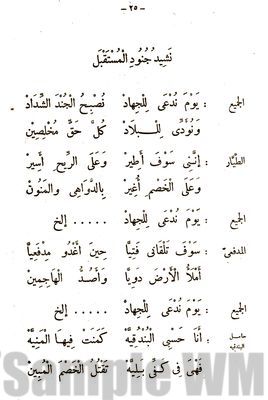 - ٢٥ -
نَشِيدُ جُنُودِ الْمُسْتَقْبَلِ
الجميع : يَوْمَ نُدْعَى لِلْجِهادِ نُصْبِحُ الْجُنْدَ الشِّدَادْ
وَنُؤَدِّى لِلْبِلَادِ كُلَّ حَقٍّ مُخْلِصِينْ
الطَّيَّار : إِنَّنِى سَوْفَ أَطِيرْ وَعَلَى الرِّيحِ أَسِيرْ
وَعَلَى الْخَصْمِ أُغِيرْ بِالدَّوَاهِى وَالْمَنُونْ
الجميع : يَوْمَ نُدْعَى لِلْجِهادِ ..... إلخ
المدفعىّ : سَوْفَ تَلْقَانِى فَتِيَّا حِينَ أَغْدُو مِدْفَعِيَّا
أَمْلَأُ الْأَرْضَ دَوِيَّا وَأَصُدُّ الْهَاجِمِينْ
الجميع : يَوْمَ نُدْعَى لِلْجِهادِ ..... إلخ
حامل البندقية : أَنَا حَسْبِى الْبُنْدُقِيَّهْ كَمَنَتْ فِيهَا الْمَنِيَّهْ
فَهْىَ فِى كَفِّى بَلِيَّهْ تَقْتُلُ الْخَصْمَ الْمُبِينْ
Sample WM